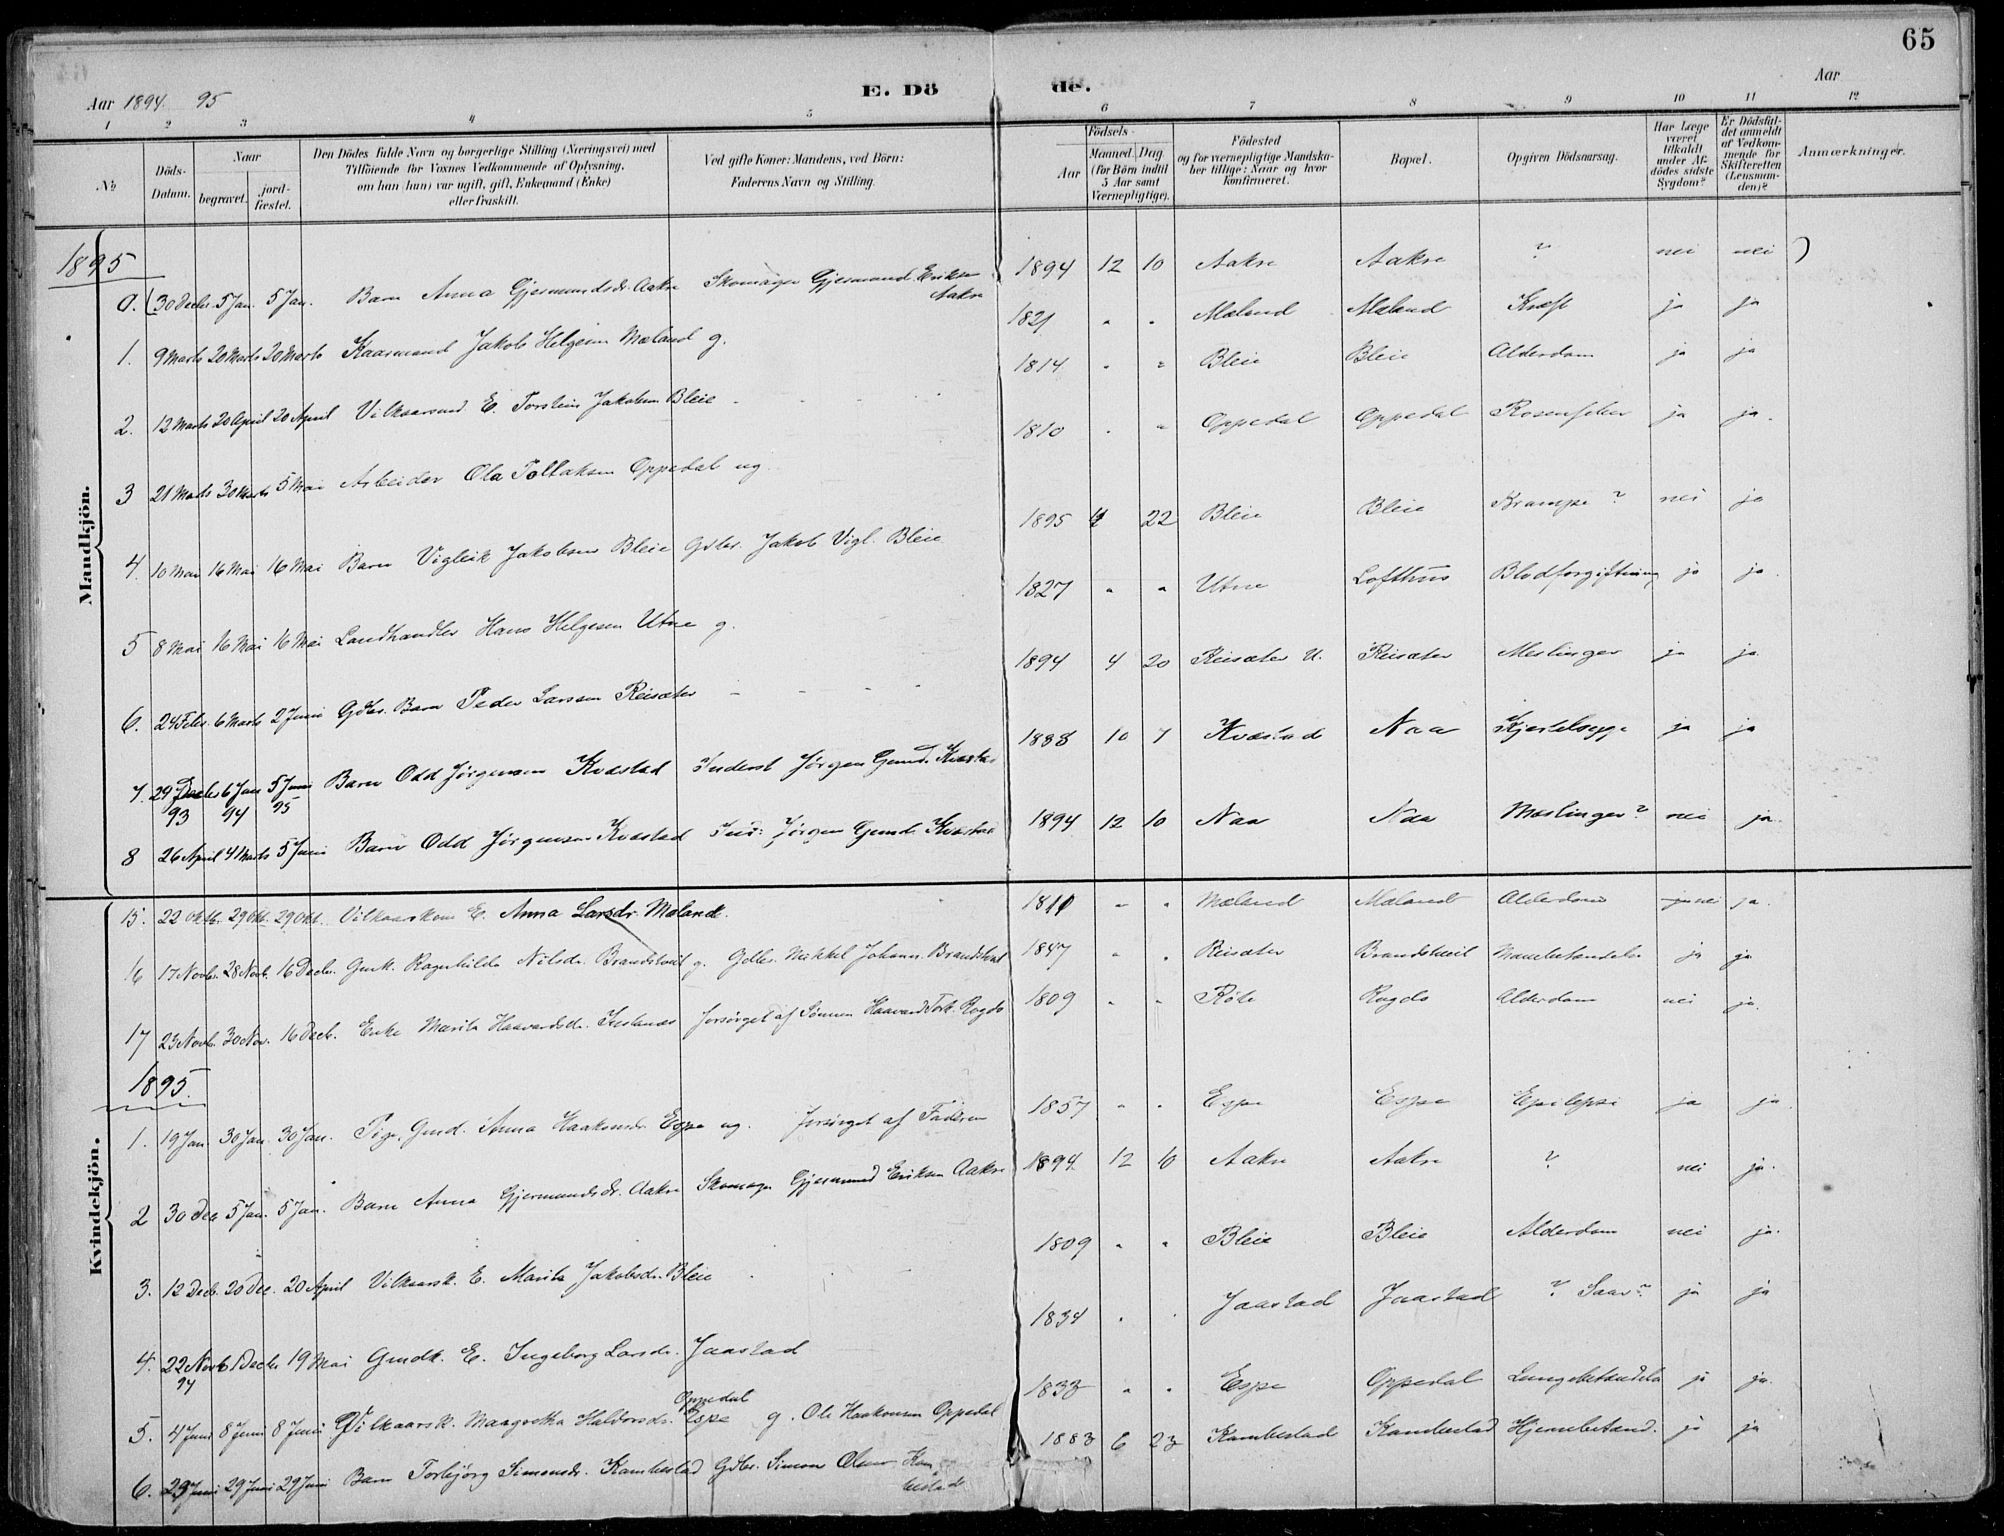 65
Aar 1894. 95
E. Dö de.
Aar
1 2 3 4 5 6 7 8 9 10 11 12
№
Döds-Datum.
Naar
begravet.
jord-fæstet.
Den Dödes fulde Navn og borgerlige Stilling (Næringsvei) med Tilföiende for Voxnes Vedkommende af Oplysning, om han (hun) var ugift, gift, Enkemand (Enke) eller fraskilt.
Ved gifte Koner: Mandens, ved Börn: Faderens Navn og Stilling.
Födsels-
Aar
Maaned. Dag
(for Börn indtil 5 Aar samt Værnepligtige).
Födested og for værnepligtige Mandskaber tillige: Naar og hvor konfirmeret.
Bopæl.
Opgiven Dödsaarsag.
Har Læge været tilkaldt under Afdödes sidste Sygdom?
Er Dödsfaldet anmeldt af Vedkommende for Skifteretten (Lensmanden)?
Anmærkninger.
Mandkjön.
1895
0. (30 Decbr. 5 Jan. 5 Jan. Barn Anna Gjermundsdr. Aakre Skomager Gjermund Eriksen Aakre 1894 12 10 Aakre Aakre ? nei nei )
1. 9 Marts 20 Marts 20 Marts Kaarmand Jakob Helgesen Mæland g. 1821 " " Mæland Mæland Kræft ja ja
2. 12 Marts 20 April 20 April Vilkaarmd. E. Torstein Jakobsen Bleie 1814 " " Bleie Bleie Alderdom ja ja
3 21 Marts 30 Marts 5 Mai Arbeider Ola Tollaksen Oppedal ug. 1810 " " Oppedal Oppedal Rosenfeber ja ja.
4. 10 Mai 16 Mai 16 Mai Barn Vigleik Jakobsen Bleie Gdbr. Jakob Vigl. Bleie 1895 4 22 Bleie Bleie Krampe ? nei ja
5 8 Mai 16 Mai 16 Mai Landhandler Hans Helgesen Utne g. 1827 " " Utne Lofthus Blodforgiftning ja ja.
6. 24 Febr. 6 Marts 2 Juni Gdbr. Barn Peder Larsen Reisæter 1894 4 20 Reisæter U. Reisæter Meslinger ja ja
7. 29 Decbr 93 6 Jan 94 5 Juni 95 Barn Odd Jørgensen Kvæstad Inderst Jørgen Gumd. Kvæstad 1888 10 7 Kvæstad Naa Kjertelsyge ja ja
8 26 April 4 Marts 5 Juni Barn Odd Jörgensen Kvæstad Ind: Jørgen Gumd. Kvæstad 1894 12 10 Naa Naa Mæslinger? nei ja.
Kvindekjön.
15. 22 Oktb. 29 Okt. 29 Okt. Vilkaarskone E. Anna Larsdr. Mæland. 1811 " " Mæland Mæland Alderdom nei ja.
16 17 Novbr. 28 Novb. 16 Decbr. Gmk. Ragnhilda Nilsdr. Brandstveit g. Gdbr. Mikkel Johann. Brandstveit 1847 " " Reisæter Brandstveit ja ja
17 23 Novb. 30 Nov. 16 Decb. Enke Marita Haavardsdr. forsörget af Sönnen Haavard Tork. Rogde 1809 " " Røte Rogde Alderdom nei ja.
1895.
1. 19 Jan. 30 Jan. 30 Jan. Pige, Gmd. Anna Haakonsdr. Espe ug. forsörget af Faderen 1857 " " Espe Espe Epilepsi ja ja.
2 30 Dec 5 Jan. 5 Jan. Barn Anna Gjermundsdr. Aakre Skomager Gjermund Eriksen Aakre 1894 12 10 Aakre Aakre ? nei ja.
3. 12 Decb. 20 Dec. 20 April Vilkaarsk. E. Marita Jakobsdr. Bleie 1809 " " Bleie Bleie Alderdom nei ja.
4. 22 Novb 94 1 Decbr 19 Mai Gmdk. E. Ingeborg Larsdr. Jaastad 1834 " " Jaastad Jaastad ? Saar? ja ja
5. 4 Juni 8 Juni 8 Juni Vilkaarsk. Maagretha Haldorsdr. Espe Oppedal g. Ole Haakonsen Oppedal 1833 " " Espe Oppedal Lungebetændelse ja ja.
6. 23 Juni 29 Juni 29 Juni Barn Torbjörg Simonsdr. Kambestad Gdbr. Simon Olsen Kambestad 1883 6 23 Kambestad Kambestad Hjernebetænd. ja ja